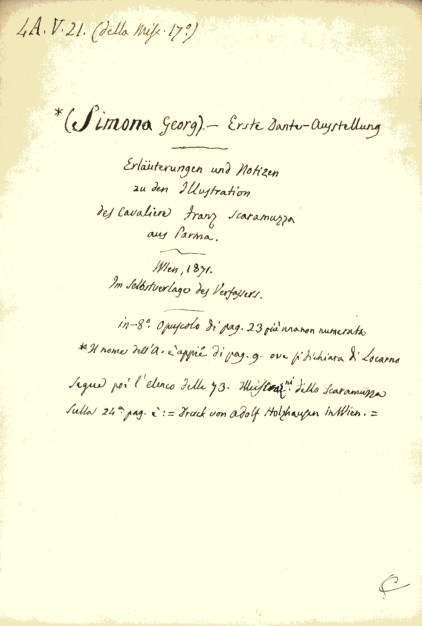 4A.V.21. (della Misc. 17º)
* (Simona Georg) — Erste Dante-Ausstellung
Erläuterungen und Notizen
zu den Illustration
des Cavaliere Franz Scaramuzza
aus Parma.
Wien, 1871.
Im Selbstverlage des Verfassers.
in-8º. Opuscolo di pag. 23 più una non numerata
* Il nome dell'A. è appiè di pag. 9. ove si dichiara di Locarno
segue poi l'elenco delle 73. dello Scaramuzza
sulla 24ª pag. è := Druck von Adolf Holzhausen in Wien. =
C